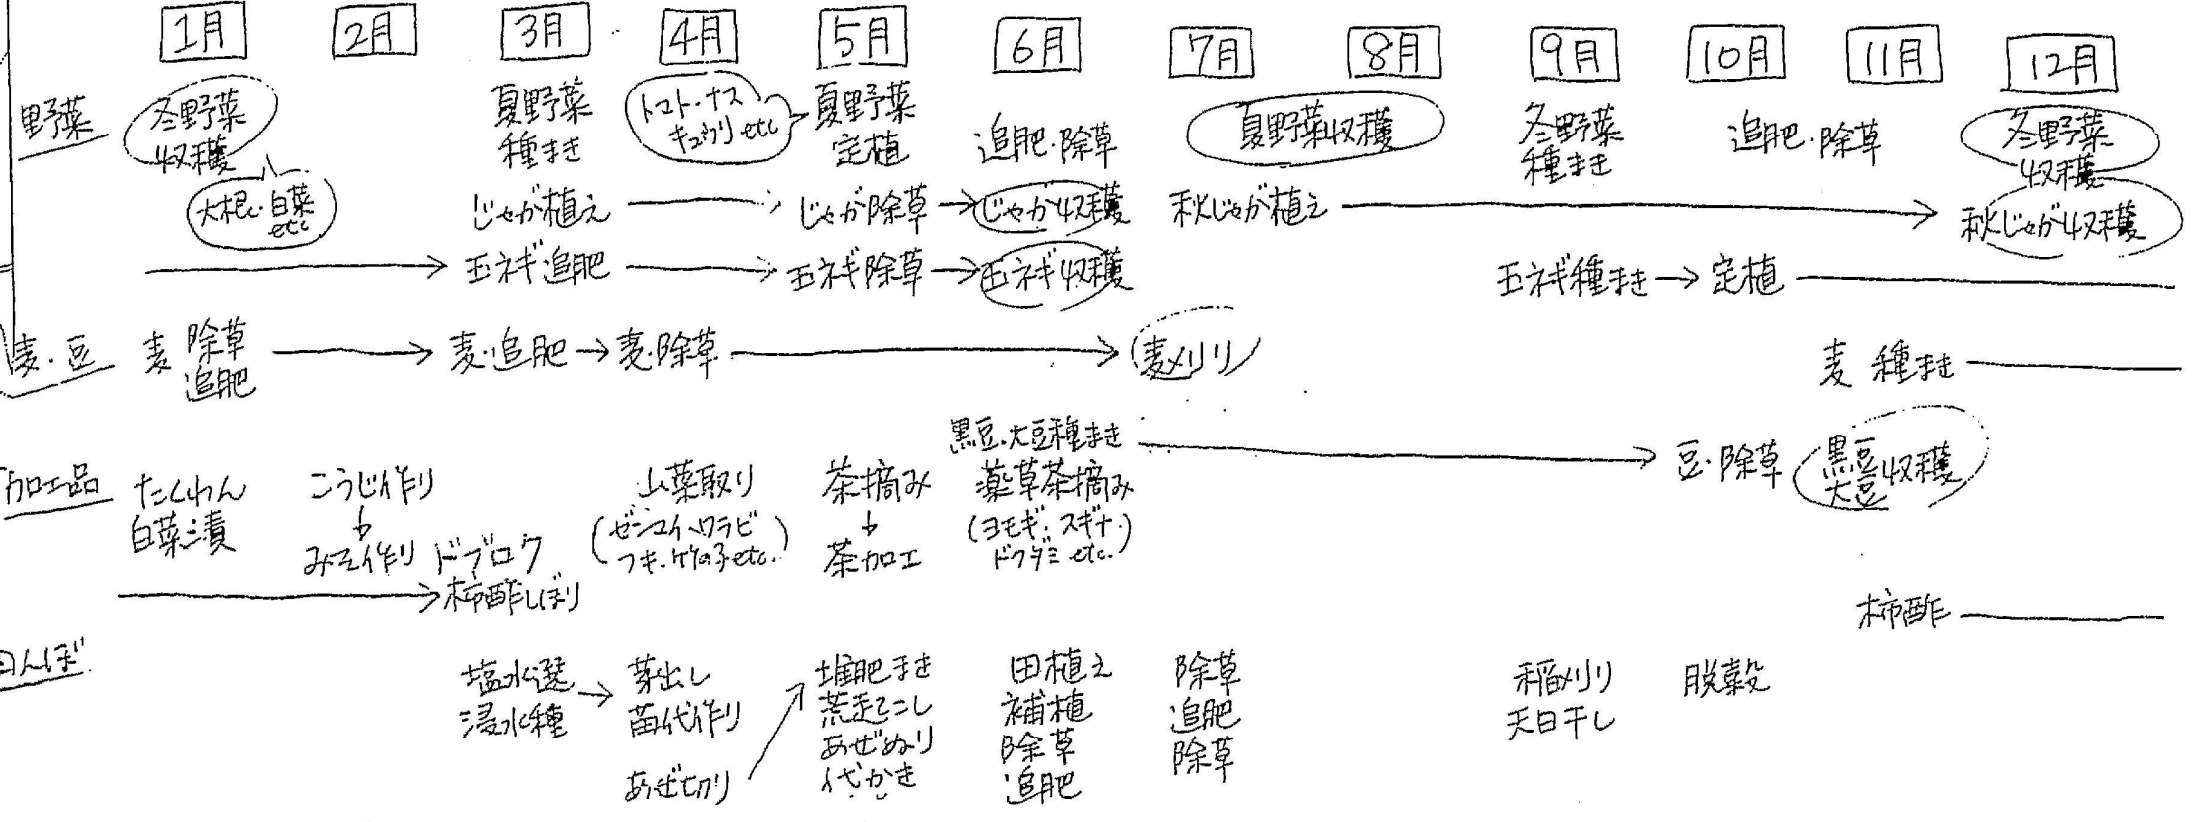 1月 2月 3月 4月 5月 6月 7月 8月 9月 10月 11月 12月
野菜
冬野菜
収穫
大根・白菜
etc
夏野菜
種まき
トマト・ナス
キュウリ etc
夏野菜
定植
追肥・除草
夏野菜収穫
冬野菜
種まき
追肥・除草
冬野菜
収穫
じゃが植え → じゃが除草 → じゃが収穫
秋じゃが植え → 秋じゃが収穫
→ 玉ネギ追肥 → 玉ネギ除草 → 玉ネギ収穫
玉ネギ種まき → 定植
麦・豆
麦 除草
追肥
→ 麦・追肥 → 麦・除草 → 麦刈り
麦 種まき
黒豆・大豆種まき → 豆・除草
黒豆
大豆
収穫
加工品
たくわん
白菜漬
こうじ作り
↓
みそ作り
ドブロク
→ 柿酢しぼり
山菜取り
(ゼンマイ・ワラビ
フキ・竹の子etc.)
茶摘み
↓
茶加工
薬草茶摘み
(ヨモギ・スギナ・
ドクダミ etc.)
柿酢
田んぼ
塩水選
浸水種
→ 芽出し
苗代作り
あぜ切り
堆肥まき
荒起こし
あぜぬり
代かき
田植え
補植
除草
追肥
除草
追肥
除草
稲刈り
天日干し
脱穀